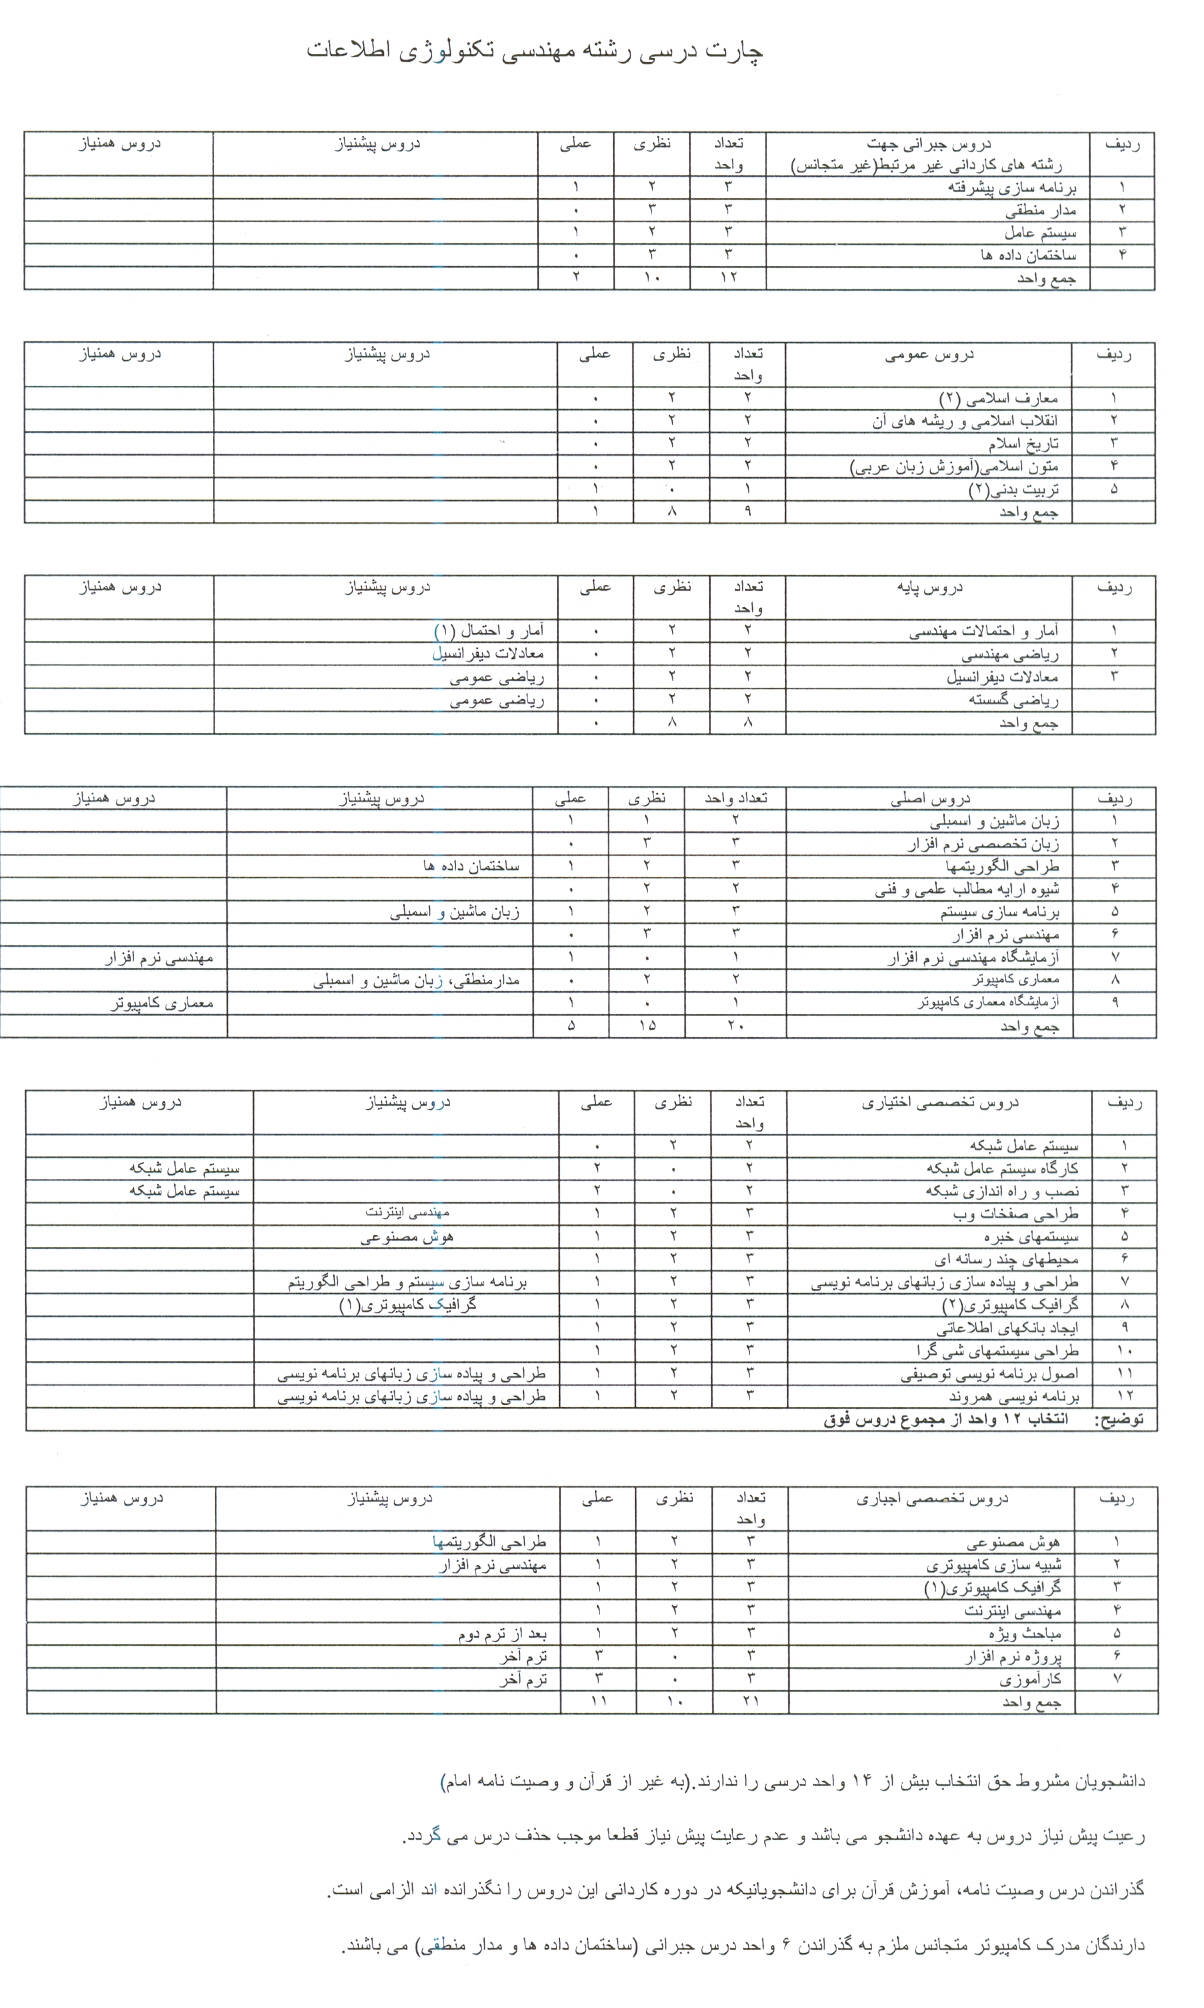 چارت درسی رشته مهندسی تکنولوژی اطلاعات
ردیف دروس جبرانی جهت رشته های کاردانی غیر مرتبط(غیر متجانس) تعداد واحد نظری عملی دروس پیشنیاز دروس همنیاز
۱ برنامه سازی پیشرفته ۳ ۲ ۱
۲ مدار منطقی ۳ ۳ ۰
۳ سیستم عامل ۳ ۲ ۱
۴ ساختمان داده ها ۳ ۳ ۰
جمع واحد ۱۲ ۱۰ ۲
ردیف دروس عمومی تعداد واحد نظری عملی دروس پیشنیاز دروس همنیاز
۱ معارف اسلامی (۲) ۲ ۲ ۰
۲ انقلاب اسلامی و ریشه های آن ۲ ۲ ۰
۳ تاریخ اسلام ۲ ۲ ۰
۴ متون اسلامی(آموزش زبان عربی) ۲ ۲ ۰
۵ تربیت بدنی(۲) ۱ ۰ ۱
جمع واحد ۹ ۸ ۱
ردیف دروس پایه تعداد واحد نظری عملی دروس پیشنیاز دروس همنیاز
۱ آمار و احتمالات مهندسی ۲ ۲ ۰ آمار و احتمال (۱)
۲ ریاضی مهندسی ۲ ۲ ۰ معادلات دیفرانسیل
۳ معادلات دیفرانسیل ۲ ۲ ۰ ریاضی عمومی
ریاضی گسسته ۲ ۲ ۰ ریاضی عمومی
جمع واحد ۸ ۸ ۰
ردیف دروس اصلی تعداد واحد نظری عملی دروس پیشنیاز دروس همنیاز
۱ زبان ماشین و اسمبلی ۲ ۱ ۱
۲ زبان تخصصی نرم افزار ۳ ۳ ۰
۳ طراحی الگوریتمها ۳ ۲ ۱ ساختمان داده ها
۴ شیوه ارایه مطالب علمی و فنی ۲ ۲ ۰
۵ برنامه سازی سیستم ۳ ۲ ۱ زبان ماشین و اسمبلی
۶ مهندسی نرم افزار ۳ ۳ ۰
۷ آزمایشگاه مهندسی نرم افزار ۱ ۰ ۱ مهندسی نرم افزار
۸ معماری کامپیوتر ۲ ۲ ۰ مدارمنطقی، زبان ماشین و اسمبلی
۹ آزمایشگاه معماری کامپیوتر ۱ ۰ ۱ معماری کامپیوتر
جمع واحد ۲۰ ۱۵ ۵
ردیف دروس تخصصی اختیاری تعداد واحد نظری عملی دروس پیشنیاز دروس همنیاز
۱ سیستم عامل شبکه ۲ ۲ ۰
۲ کارگاه سیستم عامل شبکه ۲ ۰ ۲ سیستم عامل شبکه
۳ نصب و راه اندازی شبکه ۲ ۰ ۲ سیستم عامل شبکه
۴ طراحی صفخات وب ۳ ۲ ۱ مهندسی اینترنت
۵ سیستمهای خبره ۳ ۲ ۱ هوش مصنوعی
۶ محیطهای چند رسانه ای ۳ ۲ ۱
۷ طراحی و پیاده سازی زبانهای برنامه نویسی ۳ ۲ ۱ برنامه سازی سیستم و طراحی الگوریتم
۸ گرافیک کامپیوتری(۲) ۳ ۲ ۱ گرافیک کامپیوتری(۱)
۹ ایجاد بانکهای اطلاعاتی ۳ ۲ ۱
۱۰ طراحی سیستمهای شی گرا ۳ ۲ ۱
۱۱ اصول برنامه نویسی توصیفی ۳ ۲ ۱ طراحی و پیاده سازی زبانهای برنامه نویسی
۱۲ برنامه نویسی همروند ۳ ۲ ۱ طراحی و پیاده سازی زبانهای برنامه نویسی
توضیح: انتخاب ۱۲ واحد از مجموع دروس فوق
ردیف دروس تخصصی اجباری تعداد واحد نظری عملی دروس پیشنیاز دروس همنیاز
۱ هوش مصنوعی ۳ ۲ ۱ طراحی الگوریتمها
۲ شبیه سازی کامپیوتری ۳ ۲ ۱ مهندسی نرم افزار
۳ گرافیک کامپیوتری(۱) ۳ ۲ ۱
۴ مهندسی اینترنت ۳ ۲ ۱
۵ مباحث ویژه ۳ ۲ ۱ بعد از ترم دوم
۶ پروژه نرم افزار ۳ ۰ ۳ ترم آخر
۷ کارآموزی ۳ ۰ ۳ ترم آخر
جمع واحد ۲۱ ۱۰ ۱۱
دانشجویان مشروط حق انتخاب بیش از ۱۴ واحد درسی را ندارند.(به غیر از قرآن و وصیت نامه امام)
رعیت پیش نیاز دروس به عهده دانشجو می باشد و عدم رعایت پیش نیاز قطعا موجب حذف درس می گردد.
گذراندن درس وصیت نامه، آموزش قرآن برای دانشجویانیکه در دوره کاردانی این دروس را نگذرانده اند الزامی است.
دارندگان مدرک کامپیوتر متجانس ملزم به گذراندن ۶ واحد درس جبرانی (ساختمان داده ها و مدار منطقی) می باشند.